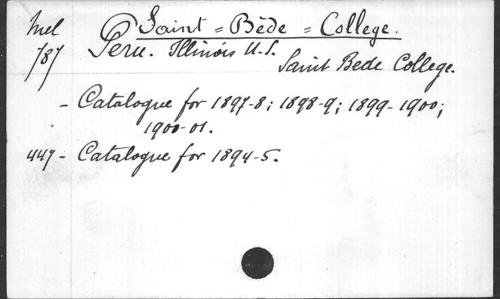 Mel Saint = Bède = College.
787 Peru. Illinois U.S.
Saint Bede College.
- Catalogue for 1897-8; 1898-9; 1899-1900;
1900-01.
447 - Catalogue for 1894-5.